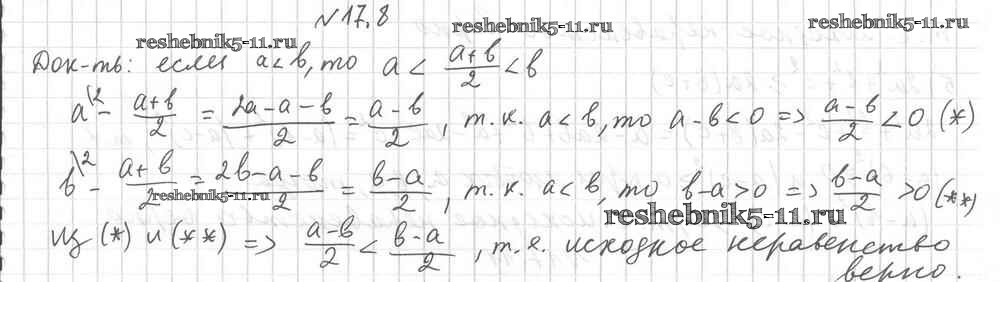 №17.8
reshebnik5-11.ru
reshebnik5-11.ru
reshebnik5-11.ru
Док-ть: если a<b, то a < (a+b)/2 < b
a\2 - (a+b)/2 = (2a-a-b)/2 = (a-b)/2, т.к. a<b, то a-b<0 => (a-b)/2 < 0 (*)
b\2 - (a+b)/2 = (2b-a-b)/2 = (b-a)/2, т.к. a<b, то b-a>0 => (b-a)/2 >0 (**)
reshebnik5-11.ru
reshebnik5-11.ru
Из (*) и (**) => (a-b)/2 < (b-a)/2, т.е. исходное неравенство
верно.